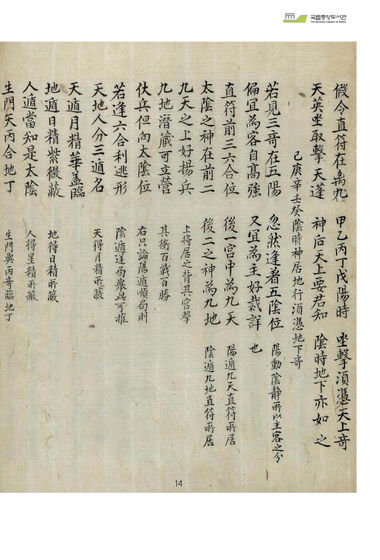 국립중앙도서관
假令直符在離九 甲乙丙丁戊陽時 坐擊須憑天上奇
天英坐取擊天蓬 神后天上要君知 陰時地下亦如之
己庚辛壬癸陰時神居地行須憑地下奇
若見三奇在五陽 忽然逢著五陰位 陽動陰靜所以主客之分
偏宜爲客自高強 又宜爲主好裁詳 也
直符前三六合位 後一宮中爲九天 陽遁九天直符所居
太陰之神在前二 後二之神爲九地 陰遁九地直符所居
九天之上好揚兵 上將居之背其宮擊
九地潛藏可立營 其衝百戰百勝
伏兵但向太陰位 右只論陽遁順局耐
若逢六合利逃形 陰遁逆局擧此可推
天地人分三遁名 天得月精所蔽
天遁月精華盖臨
地遁日精紫微蔽 地得日精所蔽
人遁當知是太陰 人得星精所蔽
生門六丙合地丁 生門與丙奇臨地丁
14